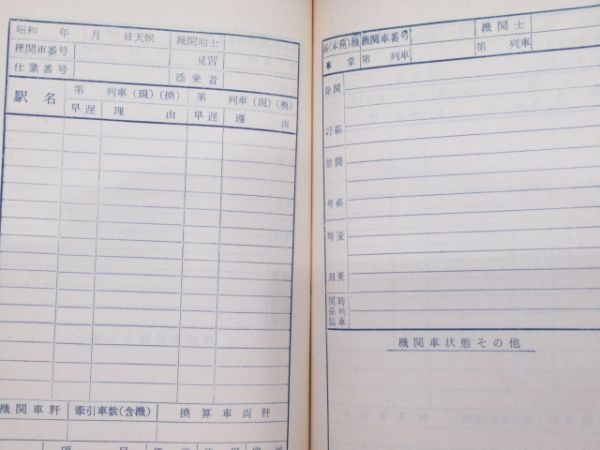 昭和　年　月　日天候　機関助士
機関車番号　見習
仕業番号　添乗者
駅名　第　列車（現）（換）　第　列車（現）（換）
早遅　理由　早遅　理由
機関車粁　牽引車数(含機)　換算車両粁
(本務)機機関車番号　機関士
車掌　第　列車　第　列車
時変
刻更
関時
係列
臨車
機関車状態その他